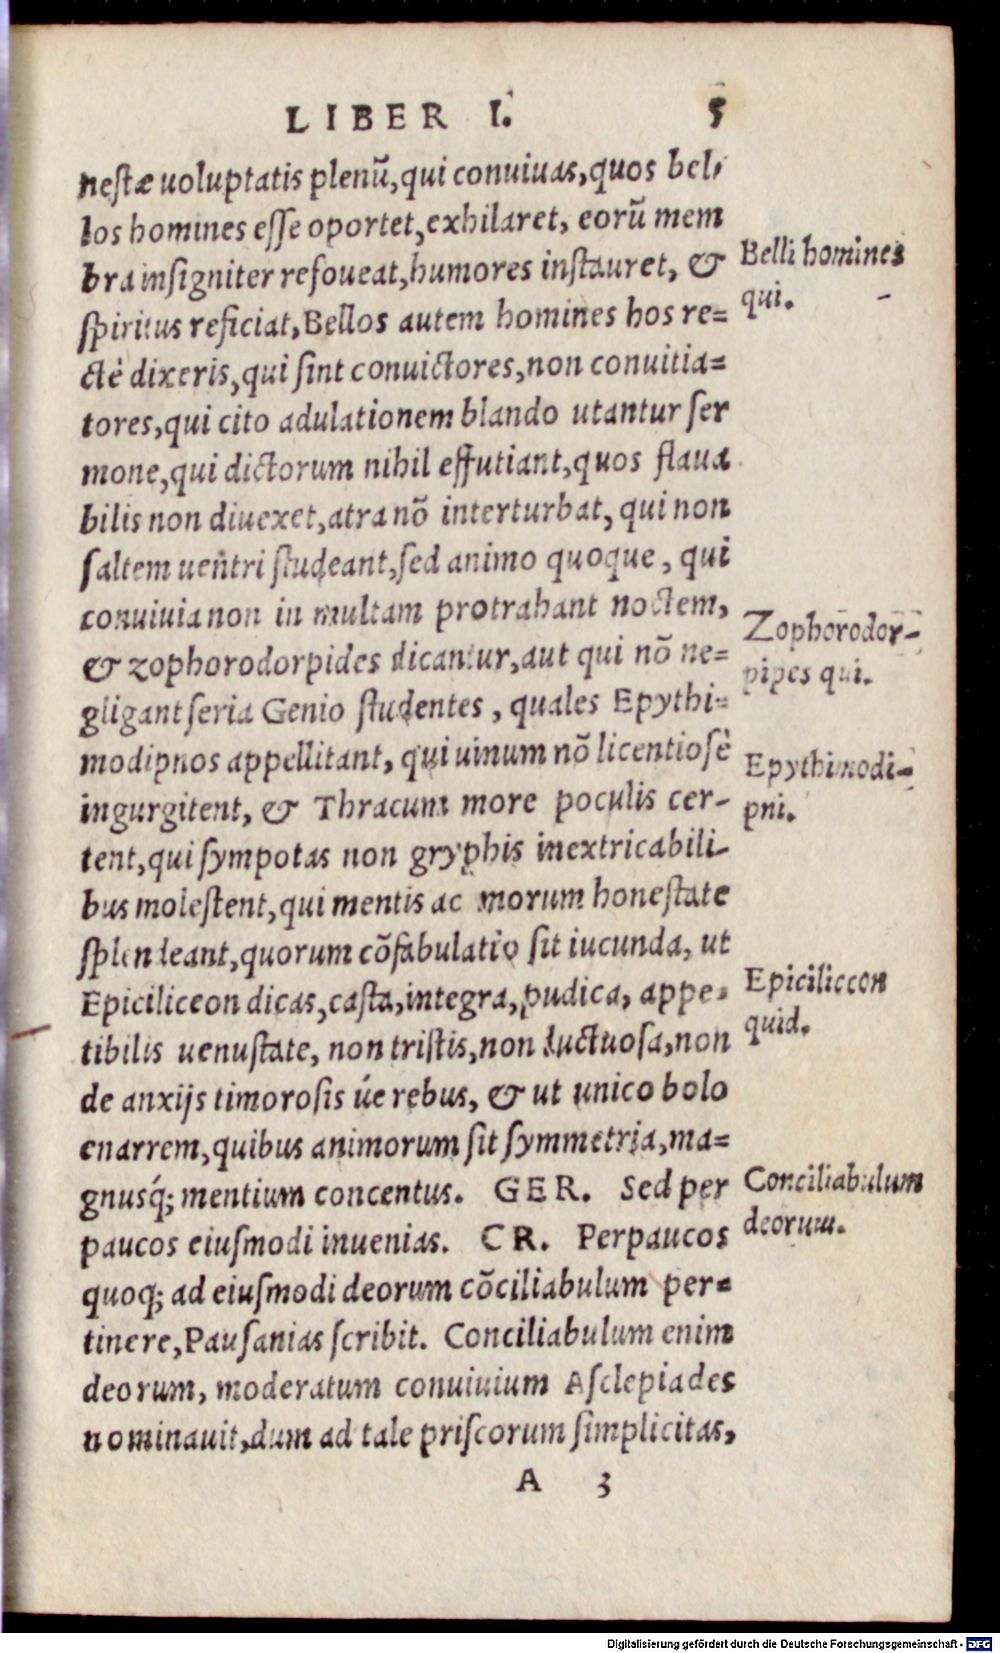 LIBER I. 5
nestæ uoluptatis plenū, qui conuiuas, quos bel-
los homines esse oportet, exhilaret, eorū mem
bra insigniter refoueat, humores instauret, &
spiritus reficiat, Bellos autem homines hos re=
ctè dixeris, qui sint conuictores, non conuitia=
tores, qui cito adulationem blando utantur ser
mone, qui dictorum nihil effutiant, quos flaua
bilis non diuexet, atra nō interturbat, qui non
saltem uentri studeant, sed animo quoque, qui
conuiuia non in multam protrahant noctem,
& zophorodorpides dicantur, aut qui nō ne=
gligant seria Genio studentes, quales Epythi=
modipnos appellitant, qui uinum nō licentiosè
ingurgitent, & Thracum more poculis cer-
tent, qui sympotas non gryphis inextricabili-
bus molestent, qui mentis ac morum honestate
splendeant, quorum cōfabulatio sit iucunda, ut
Epiciliceon dicas, casta, integra, pudica, appe-
tibilis uenustate, non tristis, non luctuosa, non
de anxijs timorosis úe rebus, & ut unico bolo
enarrem, quibus animorum sit symmetria, ma=
gnusq́; mentium concentus. GER. Sed per
paucos eiusmodi inuenias. CR. Perpaucos
quoq; ad eiusmodi deorum cōciliabulum per=
tinere, Pausanias scribit. Conciliabulum enim
deorum, moderatum conuiuium Asclepiades
nominauit, dum ad tale priscorum simplicitas,
A 3
Belli homines
qui.
Zophorodor-
pipes qui.
Epythimodi-
pni.
Epiciliceon
quid.
Conciliabulum
deorum.
Digitalisierung gefördert durch die Deutsche Forschungsgemeinschaft - DFG